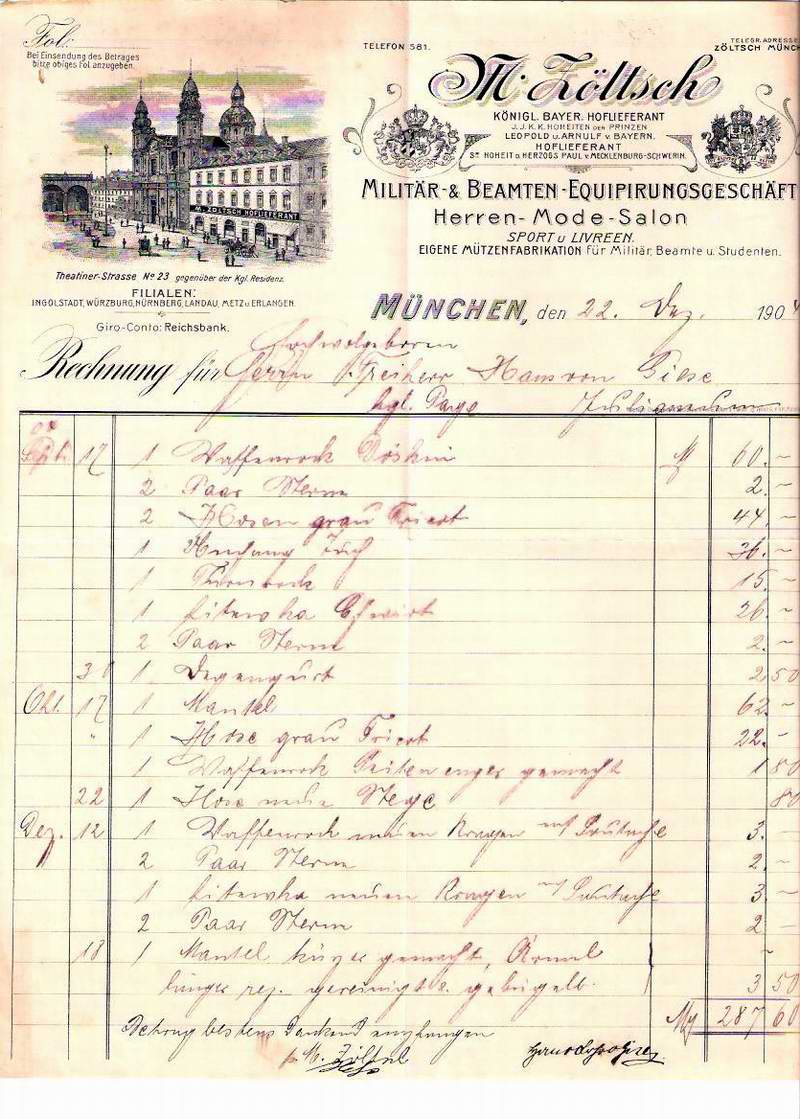 Fol:
Bei Einsendung des Betrages
bitte obiges Fol. anzugeben.
M. ZÖLTSCH HOFLIEFERANT
Theatiner-Strasse No 23 gegenüber der Kgl. Residenz.
FILIALEN:
INGOLSTADT, WÜRZBURG, NÜRNBERG, LANDAU, METZ u ERLANGEN.
Giro-Conto: Reichsbank.
TELEFON 581.
TELEGR. ADRESSE
ZÖLTSCH MÜNCH
M. Zöltsch
KÖNIGL. BAYER. HOFLIEFERANT
J.J. K.K. HOHEITEN DER PRINZEN
LEOPOLD u. ARNULF v. BAYERN.
HOFLIEFERANT
Sr HOHEIT D. HERZOGS PAUL v. MECKLENBURG-SCHWERIN.
MILITÄR- & BEAMTEN-EQUIPIRUNGSGESCHÄFT
Herren-Mode-Salon
SPORT u LIVREEN.
EIGENE MÜTZENFABRIKATION für Militär, Beamte u. Studenten.
MÜNCHEN, den 22. Dez. 1904
Hochwolgeboren
Rechnung für Herrn Freiherr Hans von Giese
kgl. Page
04
17 1 Waffenrock Döskin M 60.-
2 Paar Sterne 2.-
2 Hosen grau Tricot 44.-
1 36.-
1 15.-
1 Litewka 26.-
2 Paar Sterne 2.-
30 1 Degengurt 2 50
Okt. 17 1 Mantel 62.-
" 1 Hose grau Tricot 22.-
1 Waffenrock Seiten enger gemacht 1 80
22 1 Hose neue Stege 80
Dez. 12 1 Waffenrock neuen Kragen mit Soutache 3.-
2 Paar Sterne 2.-
1 Litewka neuen Kragen mit Soutache 3.-
2 Paar Sterne 2.-
18 1 Mantel kürzer gemacht, Ärmel -
länger rep. gereinigt u. gebügelt. 3 50
M 287 60
Betrag bestens dankend empfangen
p. M. Zöltsch